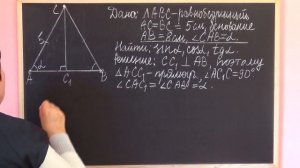 C
5
α
A
C₁
B
Дано: ΔABC-равнобедренный
AC=BC=5см, основание
AB=8см, ∠CAB=α.
Найти: sinα, cosα, tgα.
Решение: CC₁⊥AB, поэтому
ΔACC₁-прямоуг., ∠AC₁C=90°
∠CAC₁=∠CAB=α.